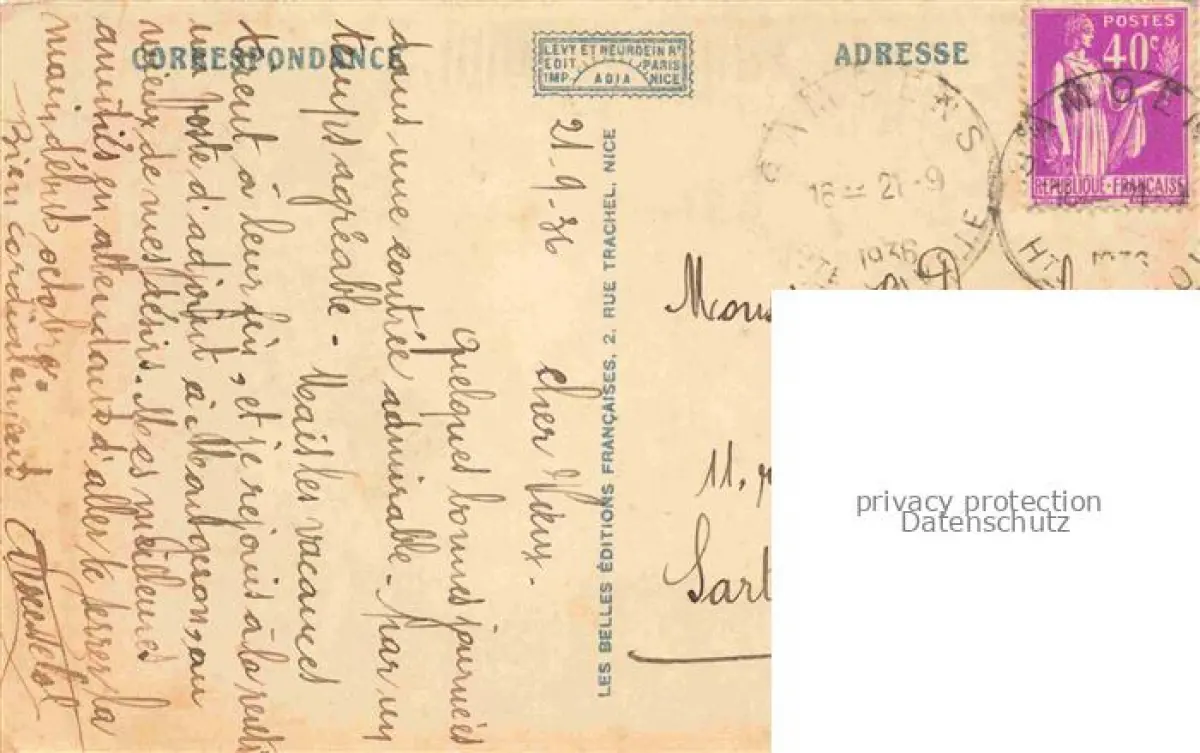 CORRESPONDANCE
LEVY ET NEURDEIN Rs
EDIT PARIS
IMP ADIA NICE
ADRESSE
POSTES
40c
REPUBLIQUE FRANÇAISE
SAMOENS
16 21-9
1936
SAMOEN
1936
LES BELLES ÉDITIONS FRANÇAISES, 2, RUE TRACHEL, NICE
21-9-36
Cher Vieux-
Quelques bonnes journées
dans une contrée admirable - par un
temps agréable - Mais les vacances
tirent à leur fin, et je rejoins à la rentrée
un poste d'adjoint à Montgeron, au
mieux de mes désirs. Mes meilleures
amitiés en attendant d'aller te serrer la
main début octobre.
Bien cordialement
11, r
Sart
privacy protection
Datenschutz